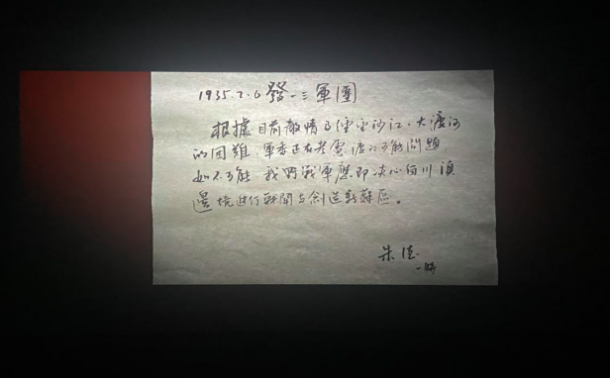 1935.2.6 發一三軍團
根據目前敵情及金沙江、大渡河
的困難,軍委正在考慮渡江可能問題
如不可能,我野戰軍應即決心留川滇
邊境進行戰鬥与創造新蘇區。
朱德